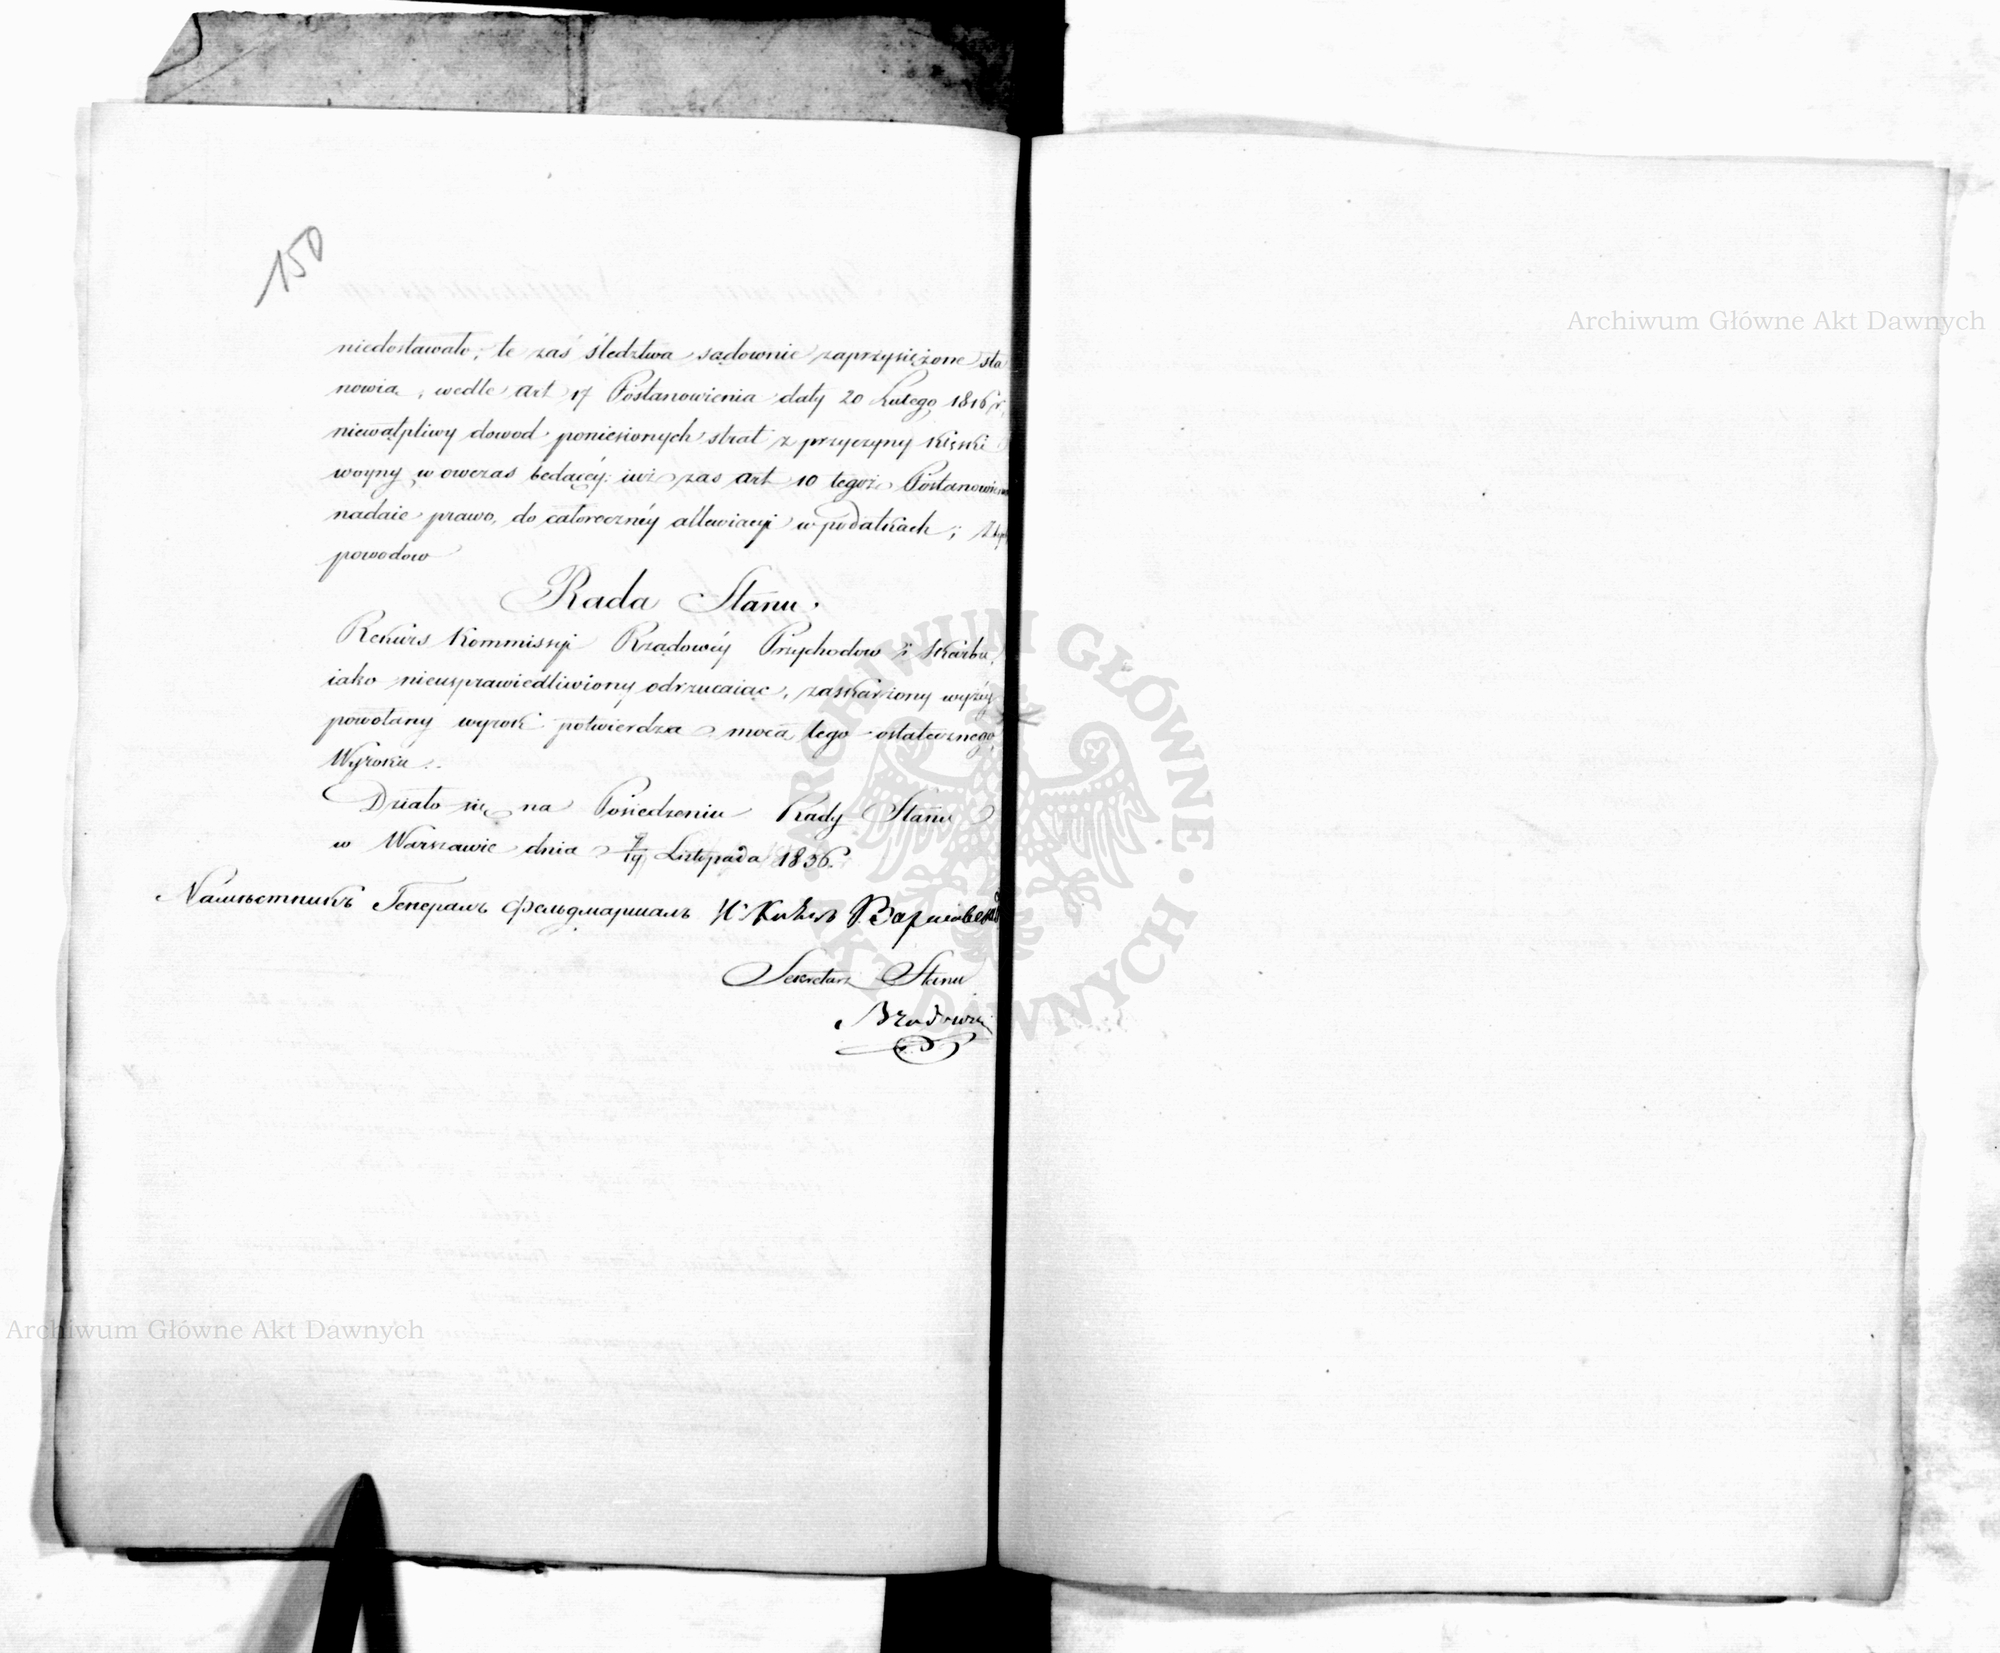 150
niedostawało; te zaś śledztwa sądownie zaprzysiężone sta
nowią, wedle art 17 Postanowienia daty 20 Lutego 1816 r.
niewątpliwy dowod poniesionych strat z przyczyny klęski
woyny w owczas będącéy: iuż zas art 10 tegoż Postanowienia
nadaie prawo, do całorocznéy allewiacyi w podatkach; Z tych
powodow
Rada Stanu.
Rekurs Kommissyi Rządowéy Przychodow i Skarbu,
iako nieusprawiedliwiony odrzucaiąc, zaskarżony wyżéy
powołany wyrok potwierdza mocą tego ostatecznego
Wyroku.
Działo się na Posiedzeniu Rady Stanu
w Warszawie dnia 7/19 Listopada 1836.
Намѣстникъ Генералъ Фельдмаршалъ Князь Варшавскій
Sekretarz Stanu
Archiwum Główne Akt Dawnych
Archiwum Główne Akt Dawnych
ARCHIWUM GŁÓWNE AKT DAWNYCH